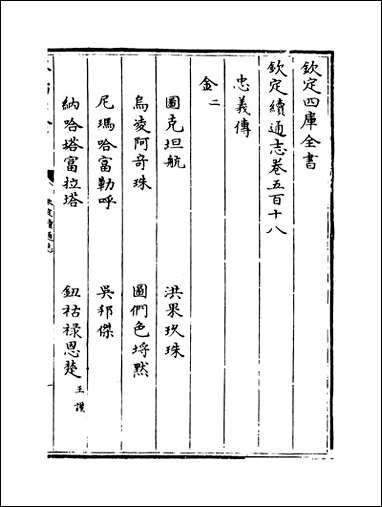 欽定四庫全書
欽定續通志卷五百十八
忠義傳
金二
圖克坦航　洪果玖珠
烏凌阿奇珠　圖們色埒默
尼瑪哈富勒呼　吳邦傑
納哈塔富拉塔　鈕祜祿恩楚王謨